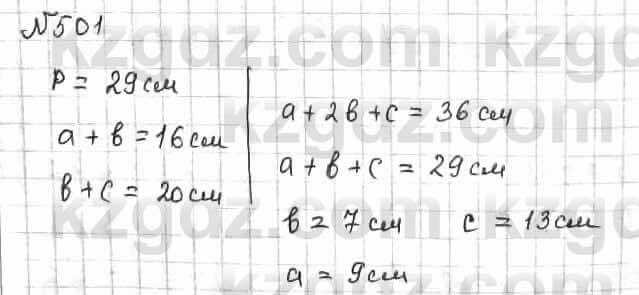 №501
P = 29 см
a + b = 16 см
b + c = 20 см
a + 2b + c = 36 см
a + b + c = 29 см
b = 7 см c = 13 см
a = 9 см
kzgdz.com kzgdz.com
kzgdz.com kzgdz.com
kzgdz.com kzgdz.com